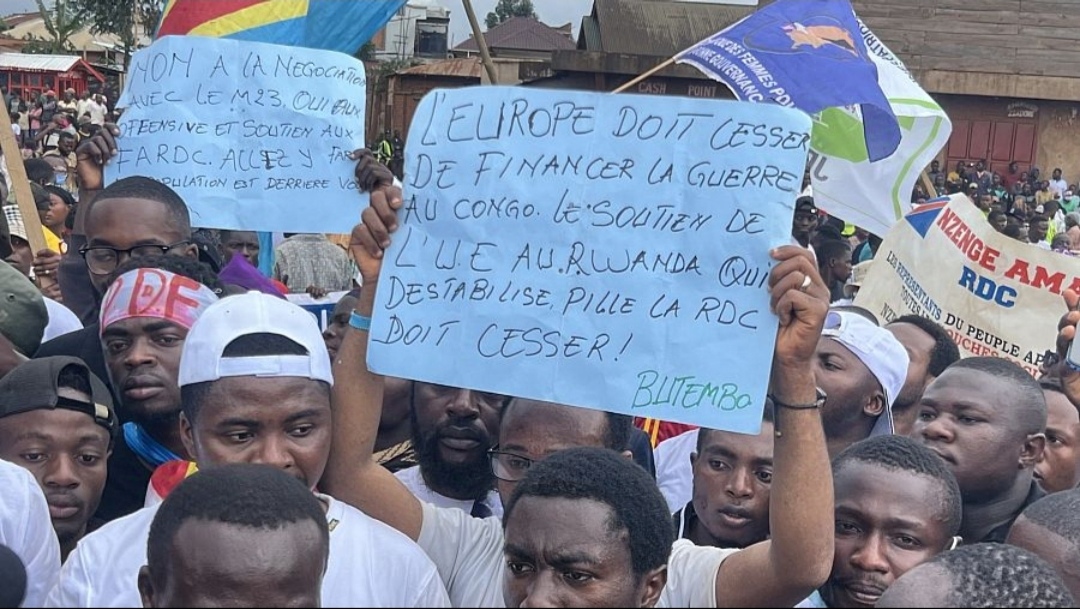 NON A LA NEGOCIATION
AVEC LE M23. OUI AUX
OFFENSIVE ET SOUTIEN AUX
FARDC. ALLEZ Y
POPULATION EST DERRIERE
L'EUROPE DOIT CESSER
DE FINANCER LA GUERRE
AU CONGO. LE SOUTIEN DE
L'U.E AU.RWANDA QUI
DESTABILISE, PILLE LA RDC
DOIT CESSER!
BUTEMBO
DES FEMMES
GOUVERNANC
CASH POINT
NZENGE AMA
RDC
LES REPRÉSENTANTS DU PEUPLE
TOUTES
RDF